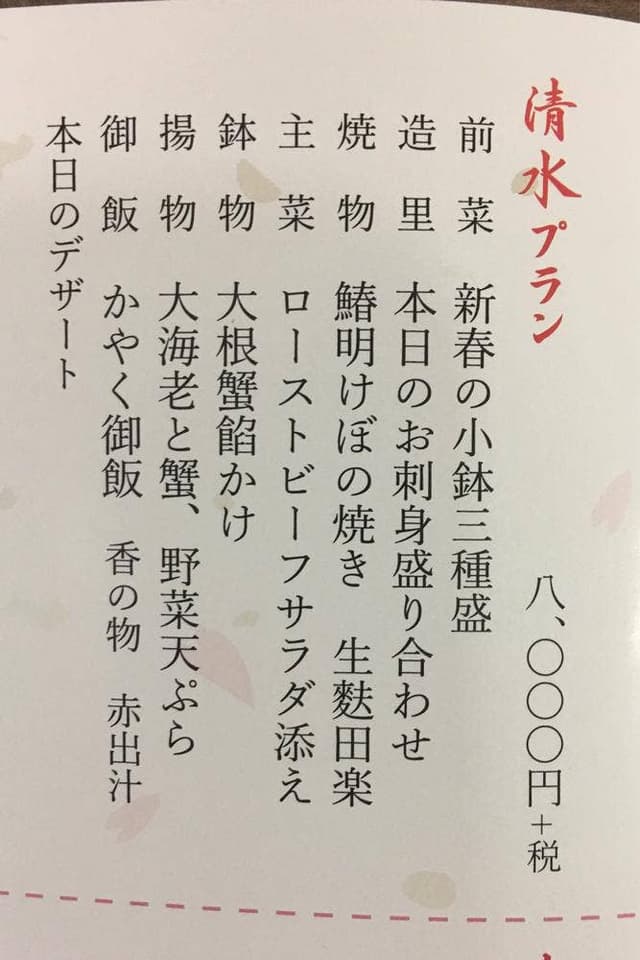 清水プラン 八、〇〇〇円+税
前菜 新春の小鉢三種盛
造里 本日のお刺身盛り合わせ
焼物 鰆明けぼの焼き 生麩田楽
主菜 ローストビーフサラダ添え
鉢物 大根蟹餡かけ
揚物 大海老と蟹、野菜天ぷら
御飯 かやく御飯 香の物 赤出汁
本日のデザート